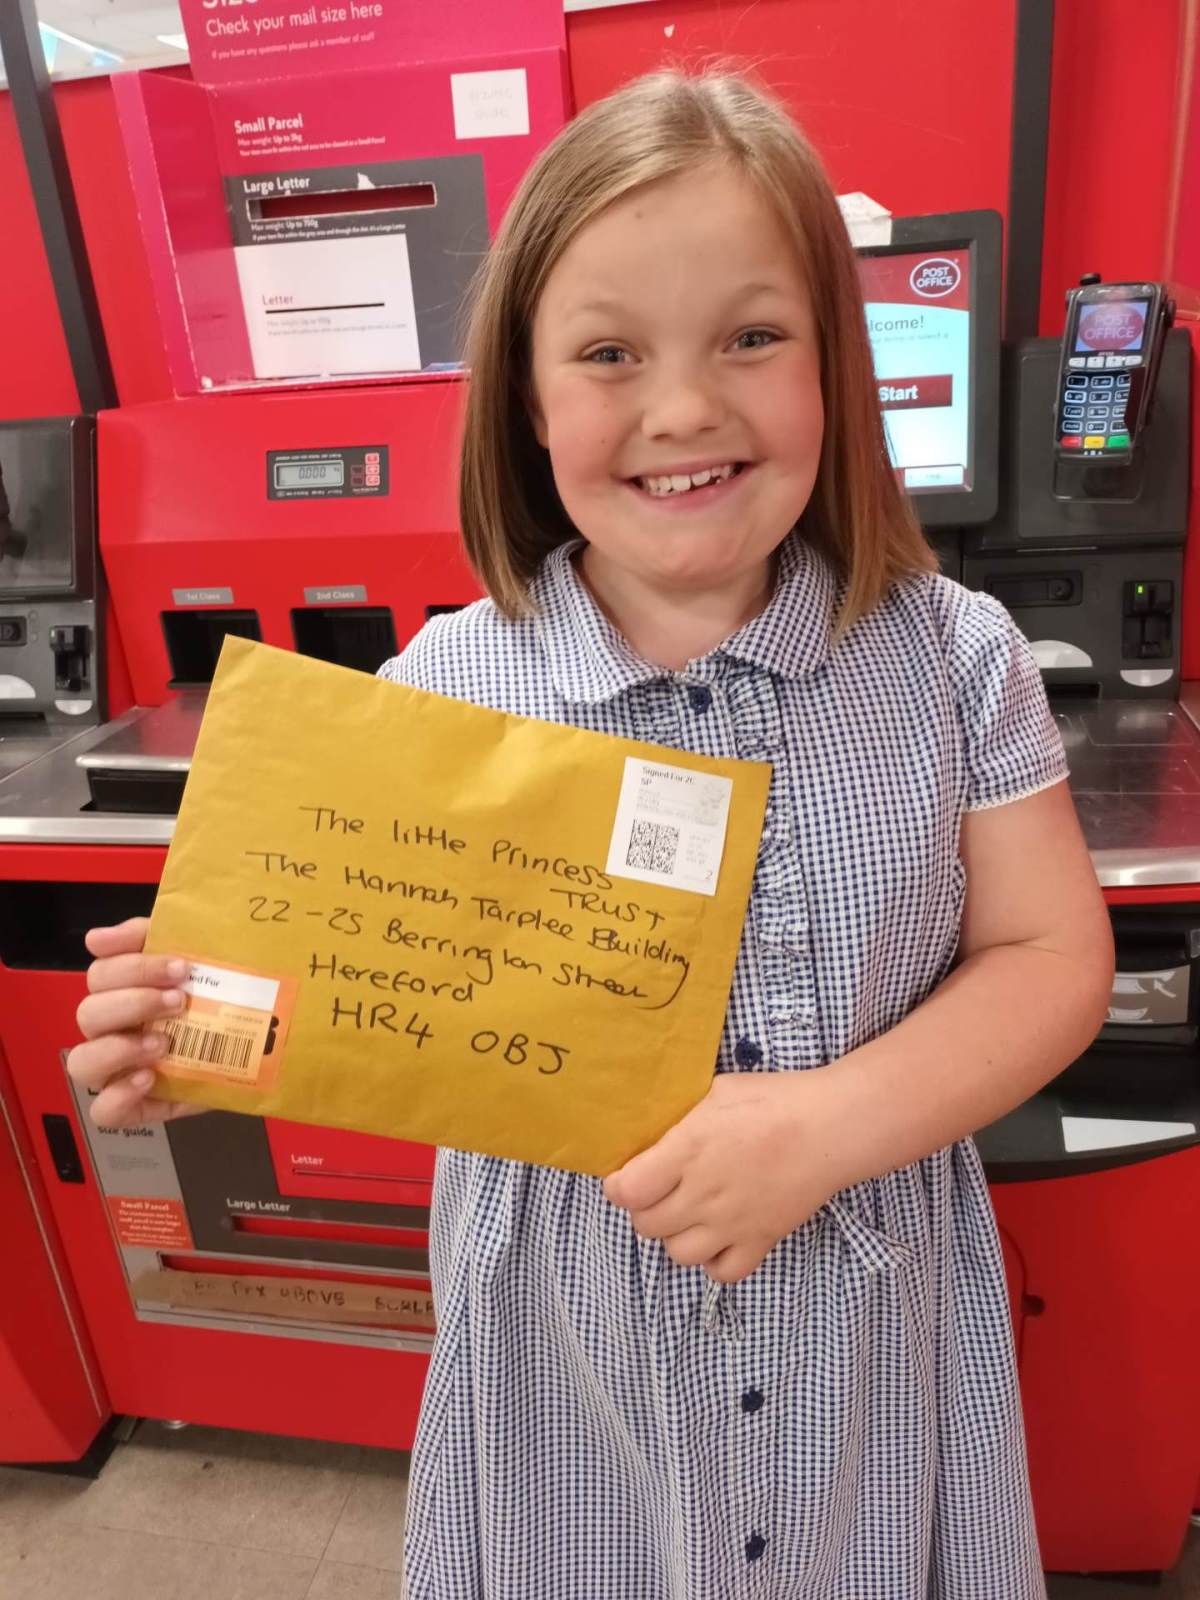 Check your mail size here
If you have any questions please ask a member of staff
Small Parcel
Max weight: Up to 2kg
Large Letter
Max weight: Up to 750g
Letter
POST
OFFICE
lcome!
Start
POST
OFFICE
0.000
1st Class
2nd Class
Signed For 2C
SP
2
The little Princess
TRUST
The Hannah Tarplee Building
22-25 Berrington Street
Hereford
HR4 0BJ
ned For
size guide
Letter
Large Letter
Small Parcel
ABOVE